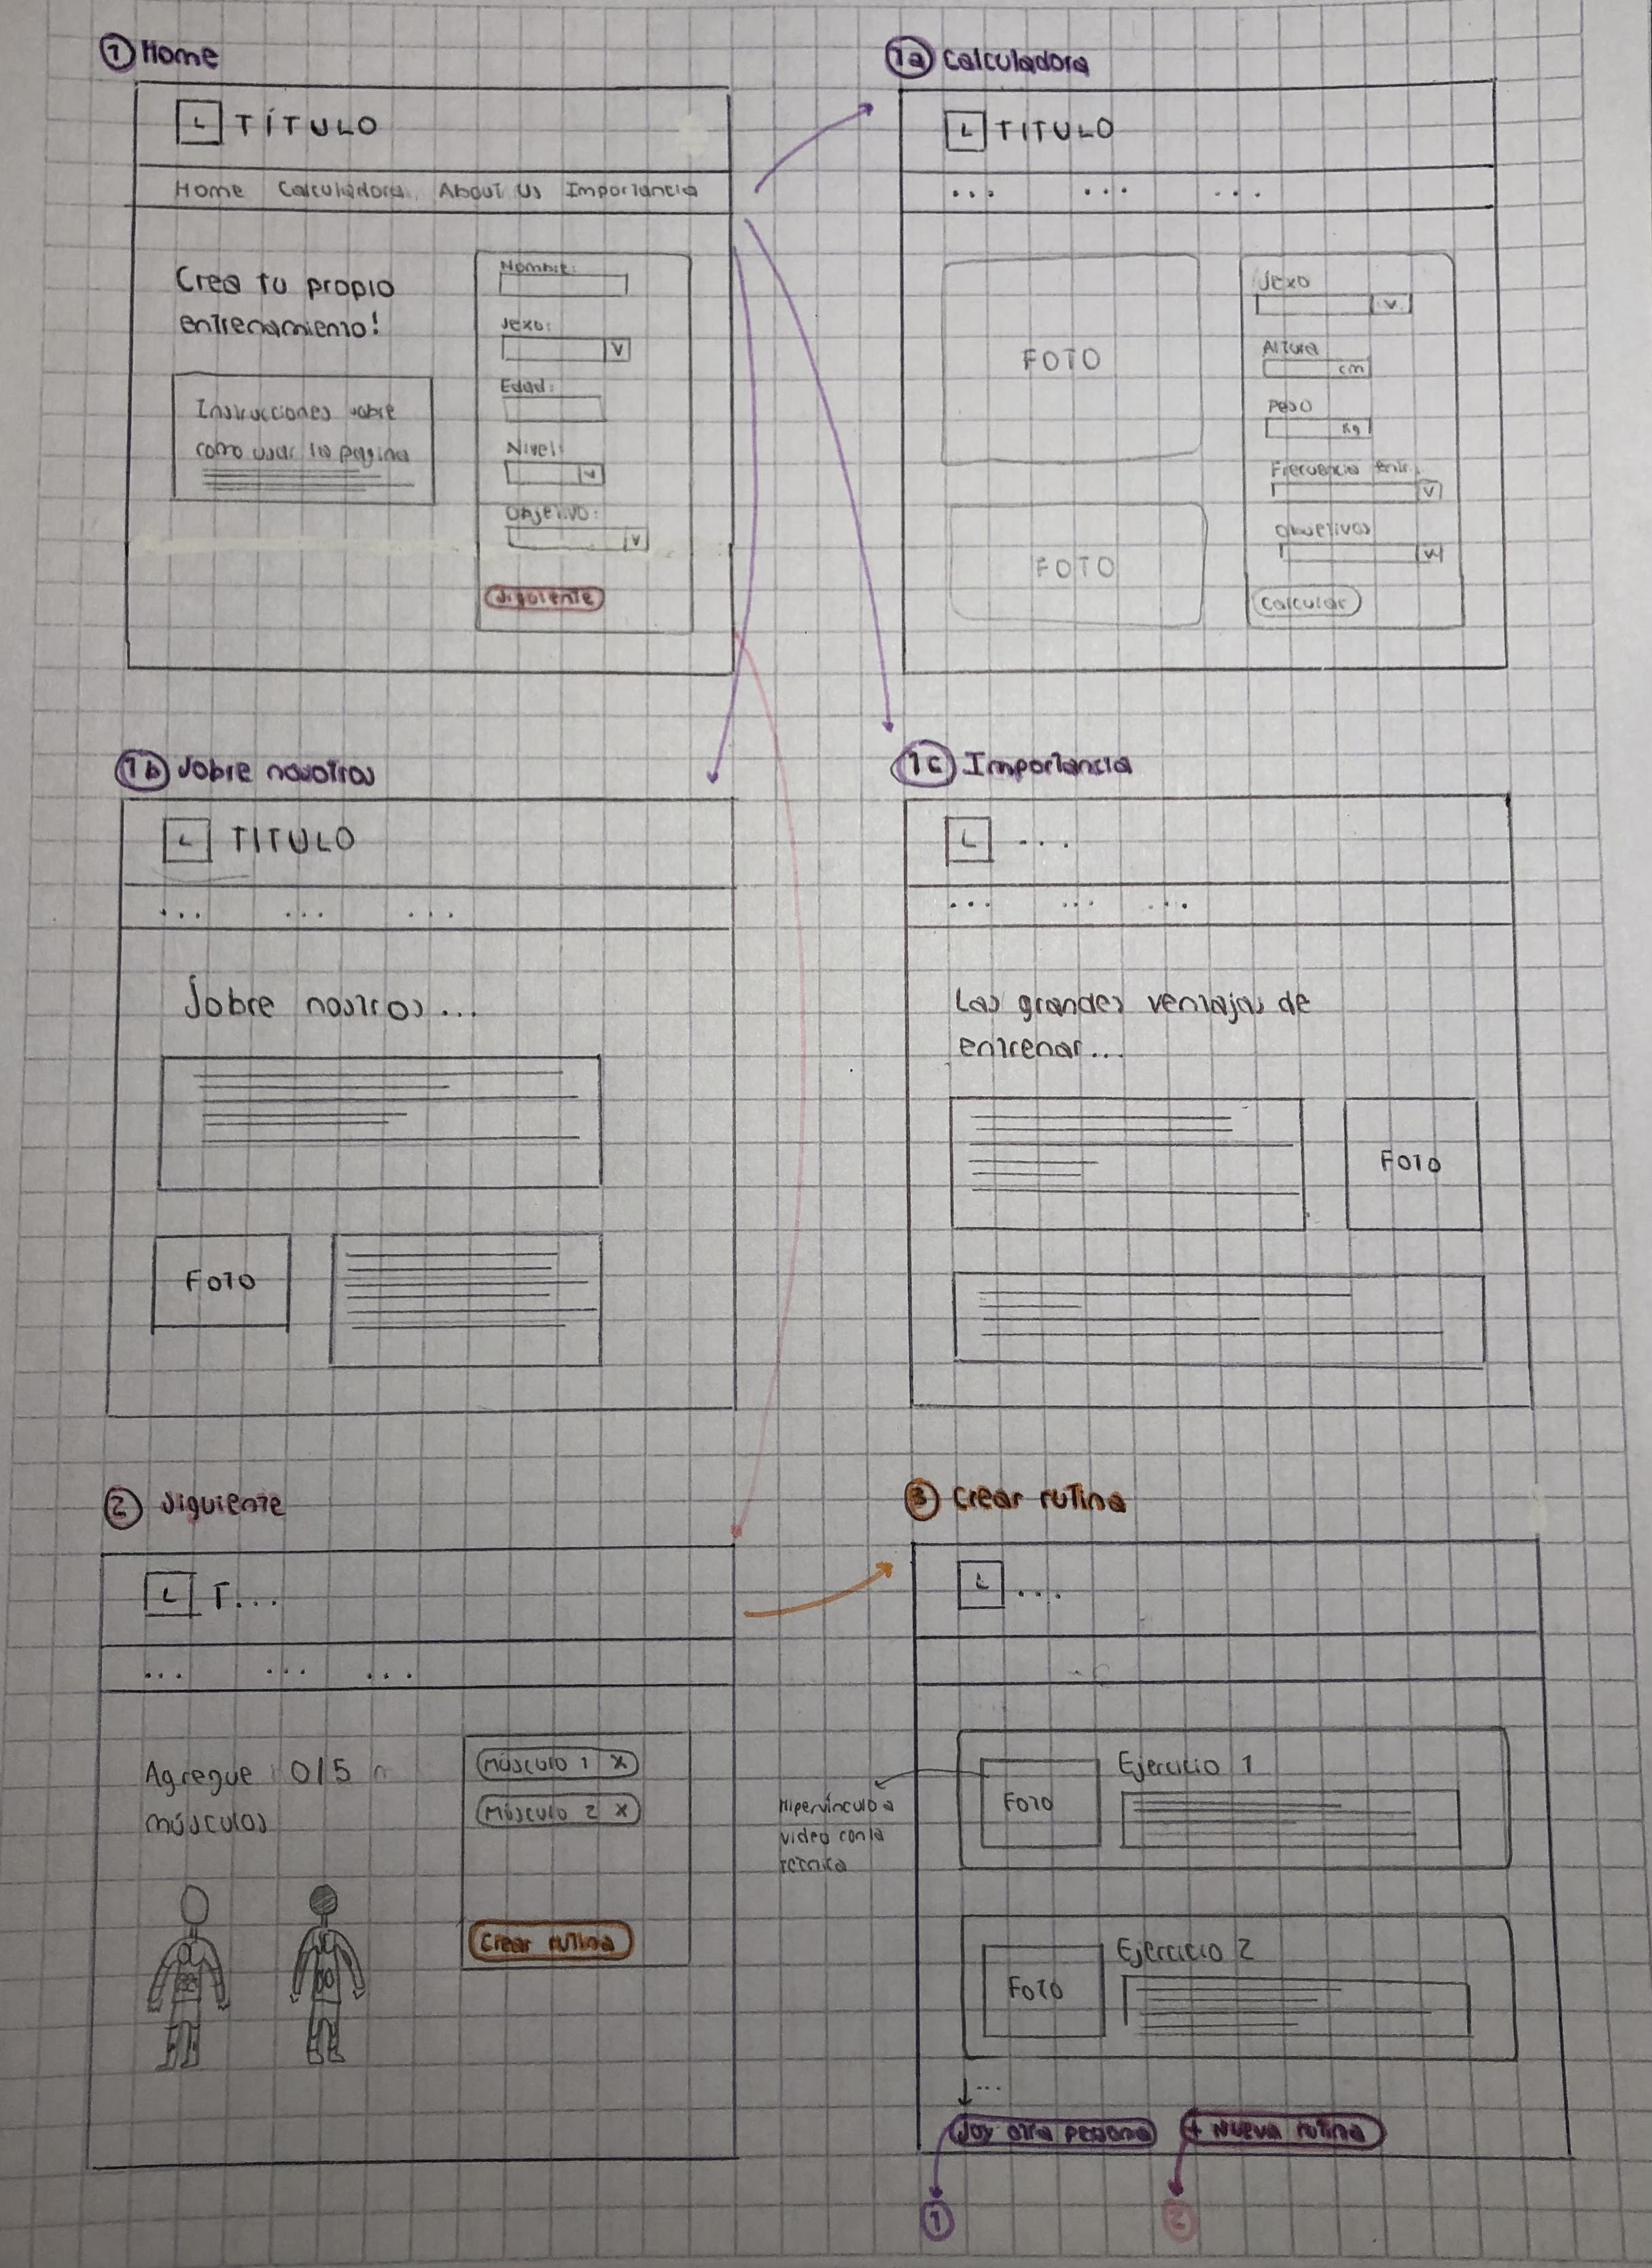 1 Home
L TÍTULO
Home Calculadora About Us Importancia
Crea tu propio
entrenamiento!
Instrucciones sobre
como usar la pagina
Nombre:
Sexo:
V
Edad:
Nivel:
v
Objetivo:
v
Siguiente
1a Calculadora
L TITULO
... ... ...
FOTO
FOTO
Sexo
v
Altura
cm
Peso
Kg
Frecuencia entr.
V
Objetivos
v
Calcular
1b Sobre nosotros
L TITULO
... ... ...
Sobre nostros...
FOTO
1c Importancia
L ...
... ... ...
Las grandes ventajas de
entrenar...
FOTO
2 Siguiente
L T...
... ... ...
Agregue 0/5
músculos
Músculo 1 X
Músculo 2 X
Crear rutina
3 Crear rutina
L ...
Hipervínculo a
video con la
técnica
FOTO
Ejercicio 1
FOTO
Ejercicio 2
↓...
Soy otra persona
+ Nueva rutina
1
2